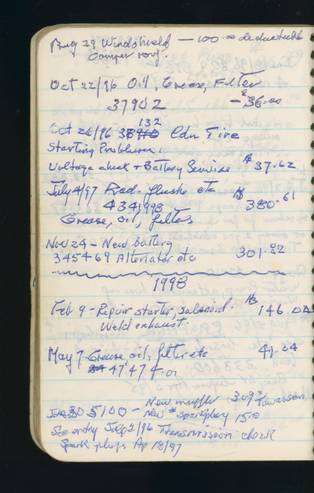 Aug 29 Windshield — 100.00 deductable
Camper roof
Oct 22/96 Oil, Grease, Filter
37902 — 36.00
132
Oct 26/96 Cdn Tire
Starting Problem:
Voltage check + Battery Service $37.62
July 4/97 Rad. flush etc $380.61
Grease, oil, filter
Nov 24 - New battery
345469 Alternator etc 301.22
1998
Feb 9 - Repair starter, solenoid. $146
Weld exhaust.
May 7 Grease oil, filter etc 41.04
47474
5100 - New muffler
New sparkplug
See entry Sep 2/96 Transmission check
Spark plugs Ap 18/97